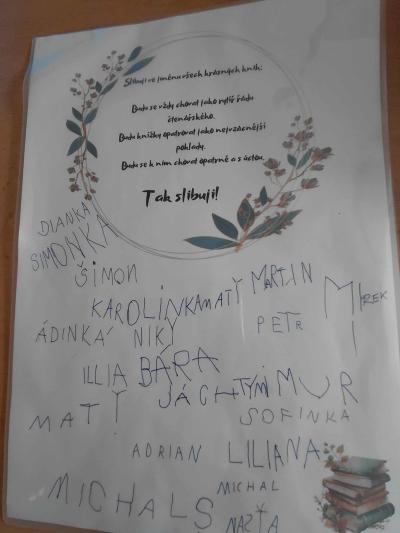 Slibuji ve jménu všech krásných knih:
Budu se vždy chovat jako rytíř řádu
čtenářského.
Budu knížky opatrovat jako nejvzácnější
poklady.
Budu se k nim chovat opatrně a s úctou.
Tak slibuji!
DIANKA
SIMONKA
ŠIMON
KAROLINKA MATY MARTIN MIREK
ÁDINKA NIKY PETR
ILLIA BÁRA
JÁCHTYM MUR
MATY SOFINKA
ADRIAN LILIANA
MICHAL Š MICHAL
NAZŤA